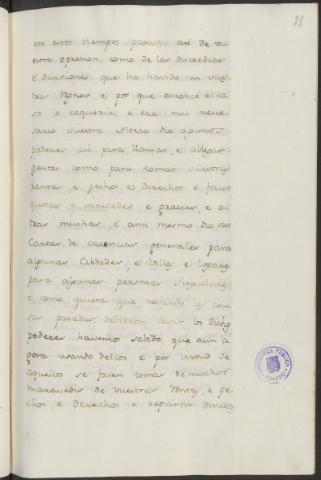 38
en estos tiempos pasados, asi de vu
estra opresion, como de las discordias
é divisiones que ha havido en vues
tros Regnos, é por que entonce el ca
so lo requeria, é era mui nece
sario vuestra Alteza dio algunos
poderes asi para llamar, é allegar
gentes, como para tomar vuestras
rentas é pechos é derechos é facer
quitas é mercedes é gracias, é o
tras muchas, é ansi mesmo dio sus
Cartas de creencias generales para
algunas Cibdades, é Villas é Logares
para algunas personas singulares
é como quiera que cesando las cau
sas pasadas, debieron cesar los dichos
poderes havemos sabido que aun a
gora usando dellos é por virtud de
aquellos se facen tomas de muchos
maravedis de vuestras Rentas, é pe
chos, é derechos, é repartir dineros
BIBLIOTECA PUBLICA
TOLEDO